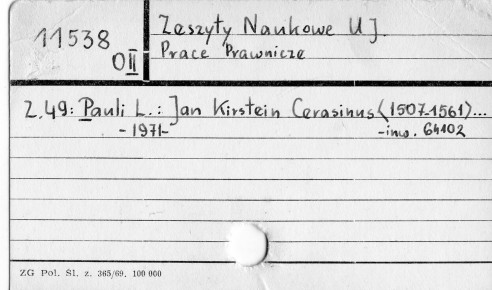 11538
O II
Zeszyty Naukowe UJ.
Prace Prawnicze
Z, 49: Pauli L.: Jan Kirstein Cerasinus (1507-1561)...
-1971-
-inw. 64102
ZG Pol. Śl. z. 365/69. 100 000